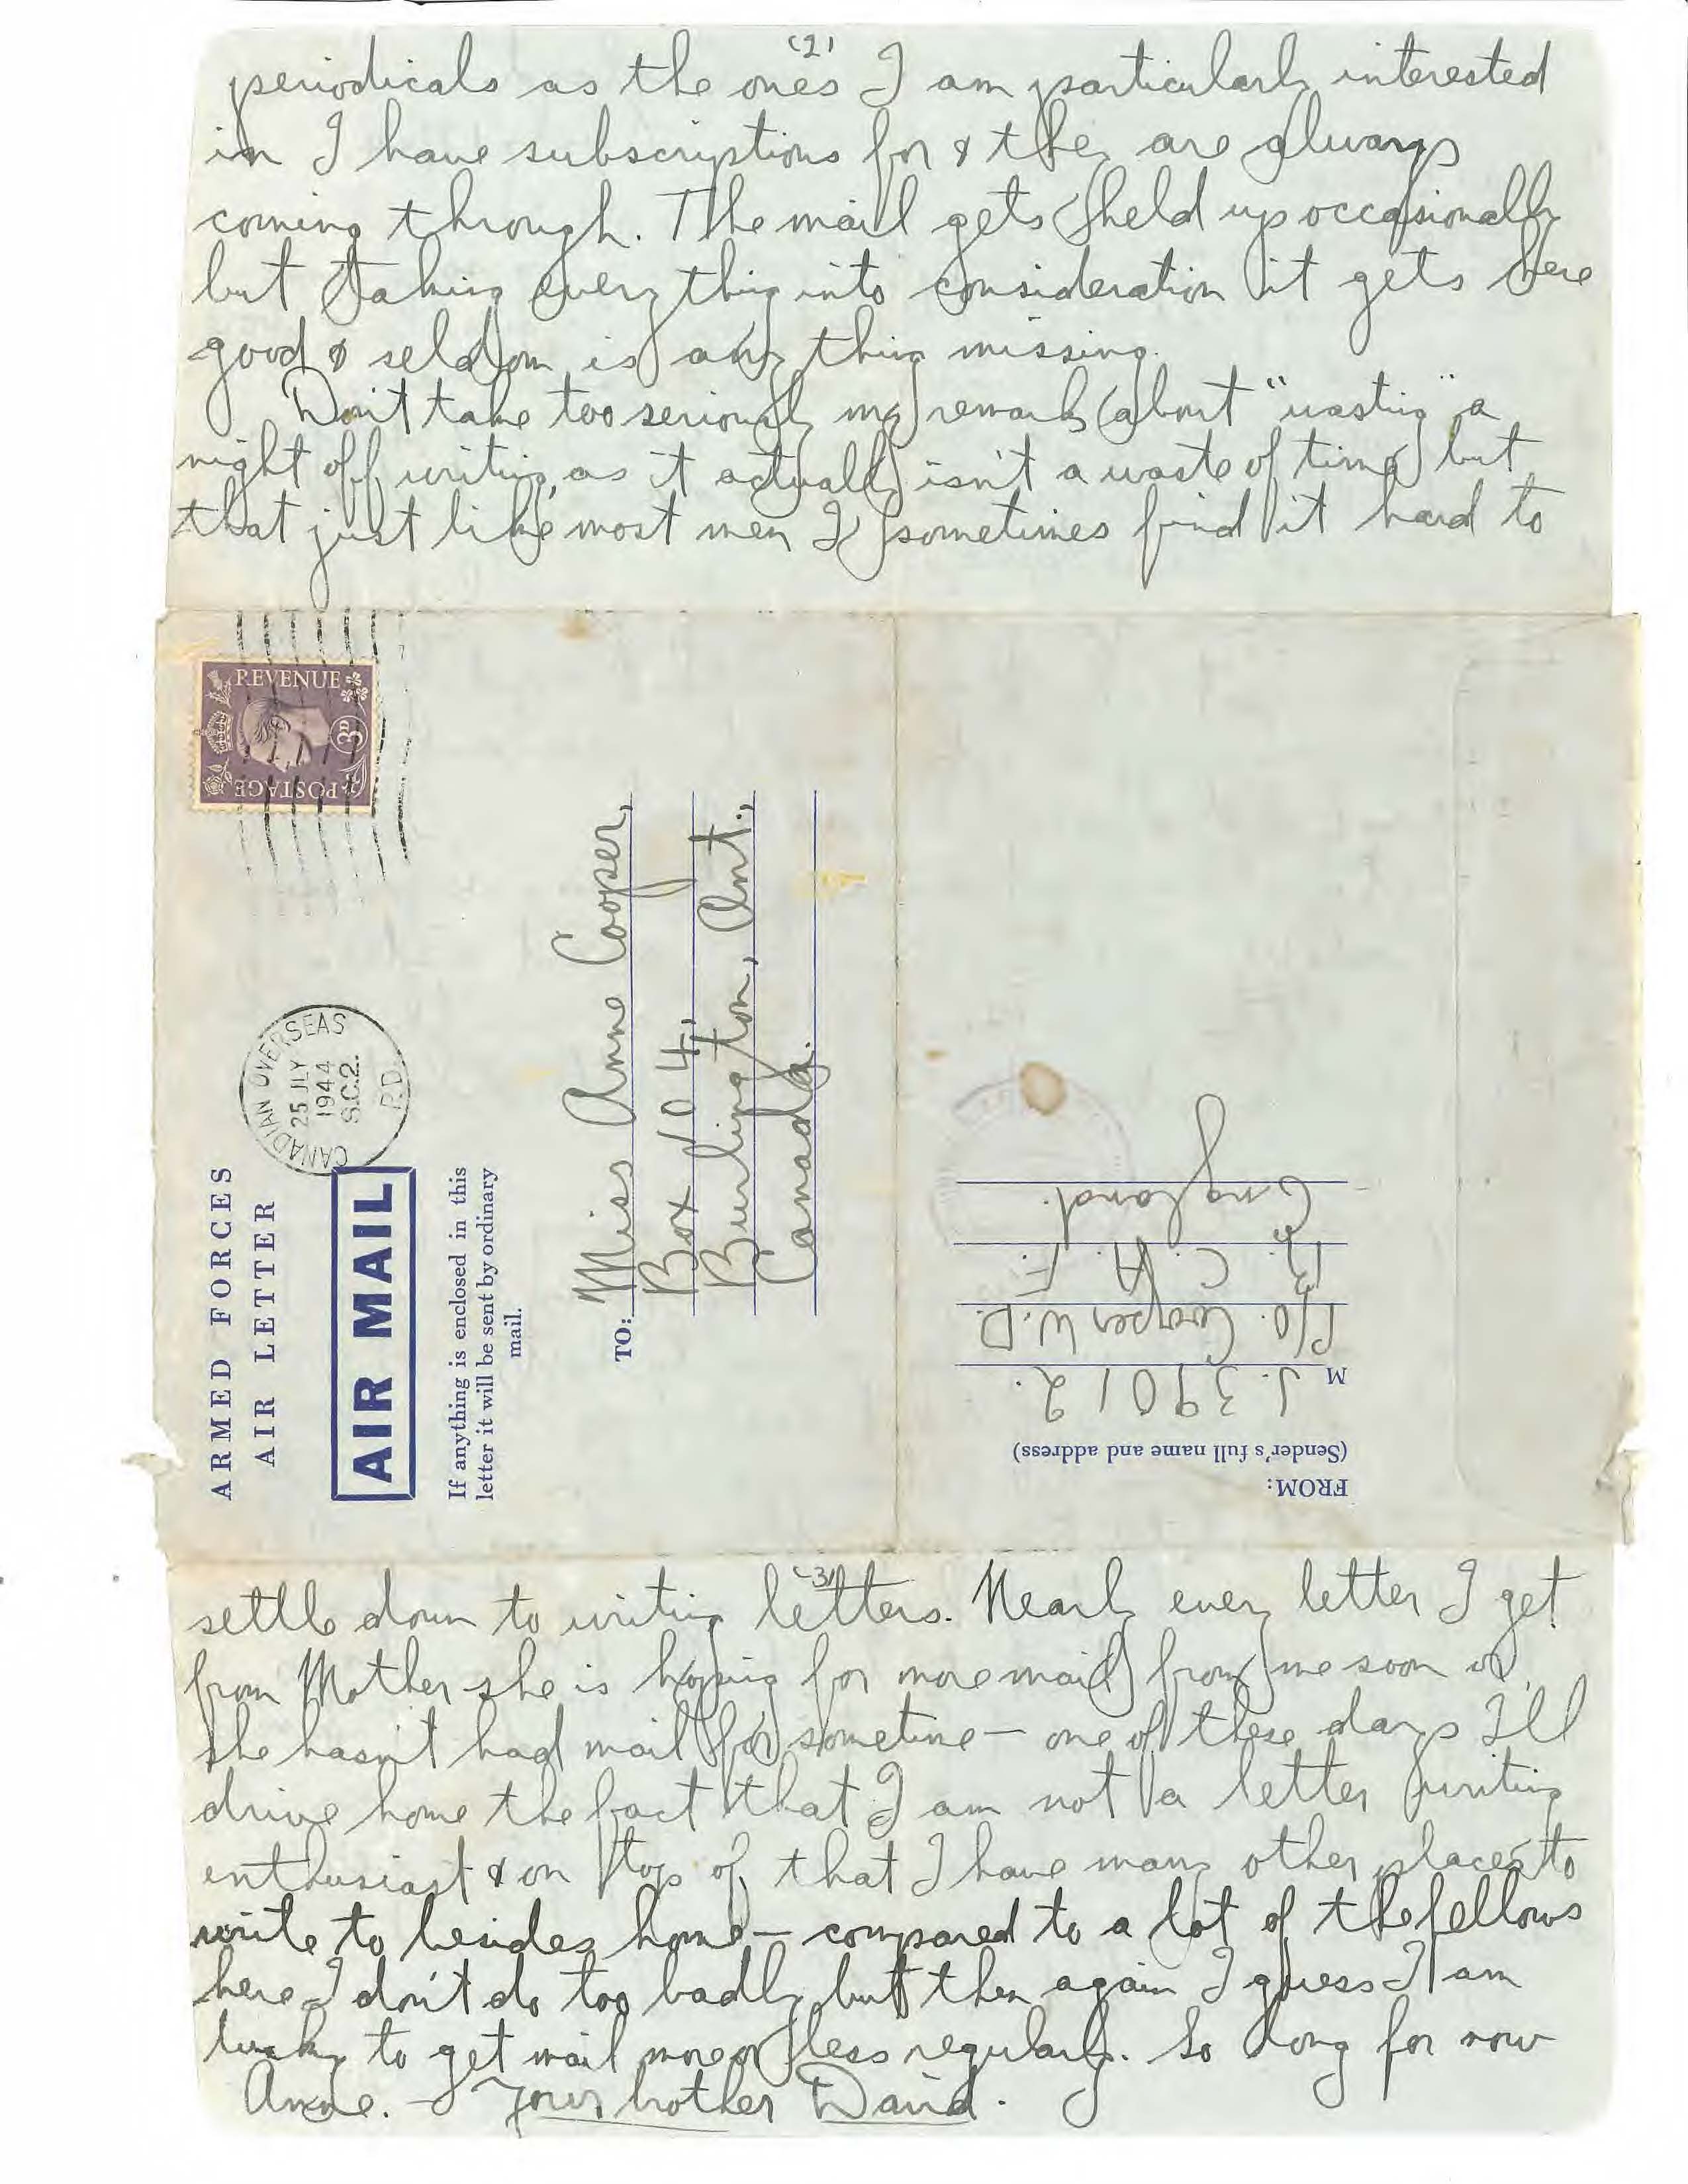 (2)
periodicals as the ones I am particularly interested
in I have subscriptions for & they are always
coming through. The mail gets held up occasionally
but taking everything into consideration it gets here
good & seldom is any thing missing.
Don't take too seriously my remark about "wasting" a
night off writing, as it actually isn't a waste of time but
that just like most men I sometimes find it hard to
REVENUE
3D
POSTAGE
CANADIAN OVERSEAS
25 JLY
1944
S.C.2.
P.D.
ARMED FORCES
AIR LETTER
AIR MAIL
If anything is enclosed in this
letter it will be sent by ordinary
mail.
TO: Miss Anne Cooper,
Box 104,
Burlington, Ont.,
Canada.
FROM:
(Sender's full name and address)
M J. 39012.
P/O. Cooper W.D.
R. C. A. F.
England.
(3)
settle down to writing letters. Nearly every letter I get
from Mother she is hoping for more mail from me soon or
she hasn't had mail for sometime — one of these days I'll
drive home the fact that I am not a letter writing
enthusiast & on top of that I have many other places to
write to besides home — compared to a lot of the fellows
here I don't do too badly but then again I guess I am
lucky to get mail more or less regularly. So long for now
Anne. — Your brother David.